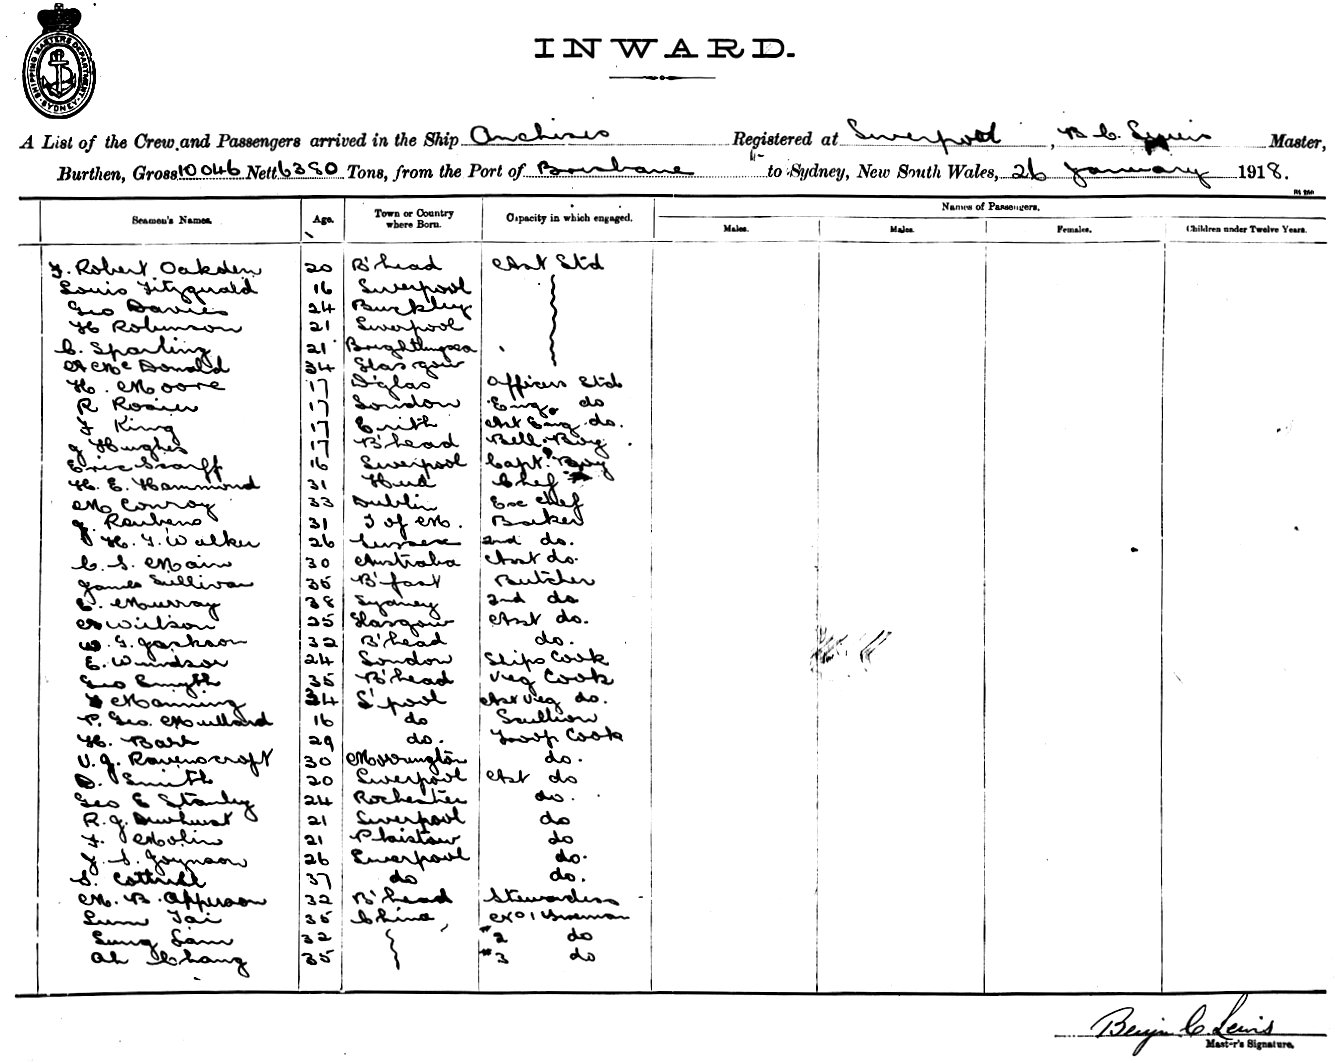 SHIPPING MASTERS DEPARTMENT SYDNEY
INWARD.
A List of the Crew and Passengers arrived in the Ship Anchises Registered at Liverpool, B C Lewis Master,
Burthen, Gross 10046 Nett 6380 Tons, from the Port of Brisbane to Sydney, New South Wales, 26 January 1918.
Names of Passengers.
Seamen's Names. Age. Town or Country where Born. Capacity in which engaged. Males. Males. Females. Children under Twelve Years.
F. Robert Oakden 20 B'head Asst Std
Louis Fitzgerald 16 Liverpool
Geo Davies 24 Buckley
H Robinson 21 Liverpool
C. Sparling 21 Brightlingsea
A McDonald 34 Glasgow
H. Moore 17 D'glas Officers Std
R Rosier 17 London Eng. do
F King 17 Erith Ast Eng do.
J Hughes 17 B'head Bell Boy
Eric Scarff 16 Liverpool Capt. Boy
H. E. Hammond 31 Hull Chef
M Conroy 33 Dublin Ex Chef
J. Reubens 31 I of M. Baker
H. J. Walker 26 Sussex 2nd do.
C. S. Main 30 Australia Asst do.
James Sullivan 35 B'fast Butcher
E. Murray 38 Sydney 2nd do
A Wilson 25 Glasgow Asst do.
W. G. Jackson 32 B'head do.
E. Windsor 24 London Ships Cook
Geo Smyth 35 B'head Veg Cook
Manning 24 L'pool Ast Veg do.
P. Geo. Mullard 16 do Scullion
H. Barr 29 do. Troop Cook
V. J. Ravenscroft 30 Morrington do.
D. Smith 20 Liverpool Ast do
Geo E Stanley 24 Rochester do.
R. J. Dewhurst 21 Liverpool do
F. Molin 21 Plaistow do
J. S. Joynson 26 Liverpool do.
S. Cottrill 37 do do.
M. B. Apperson 32 B'head Stewardess
Lum Tai 35 China, No 1 Fireman
Lung Lam 32 " 2 do
Ah Chang 35 " 3 do
Benjn C. Lewis
Master's Signature.